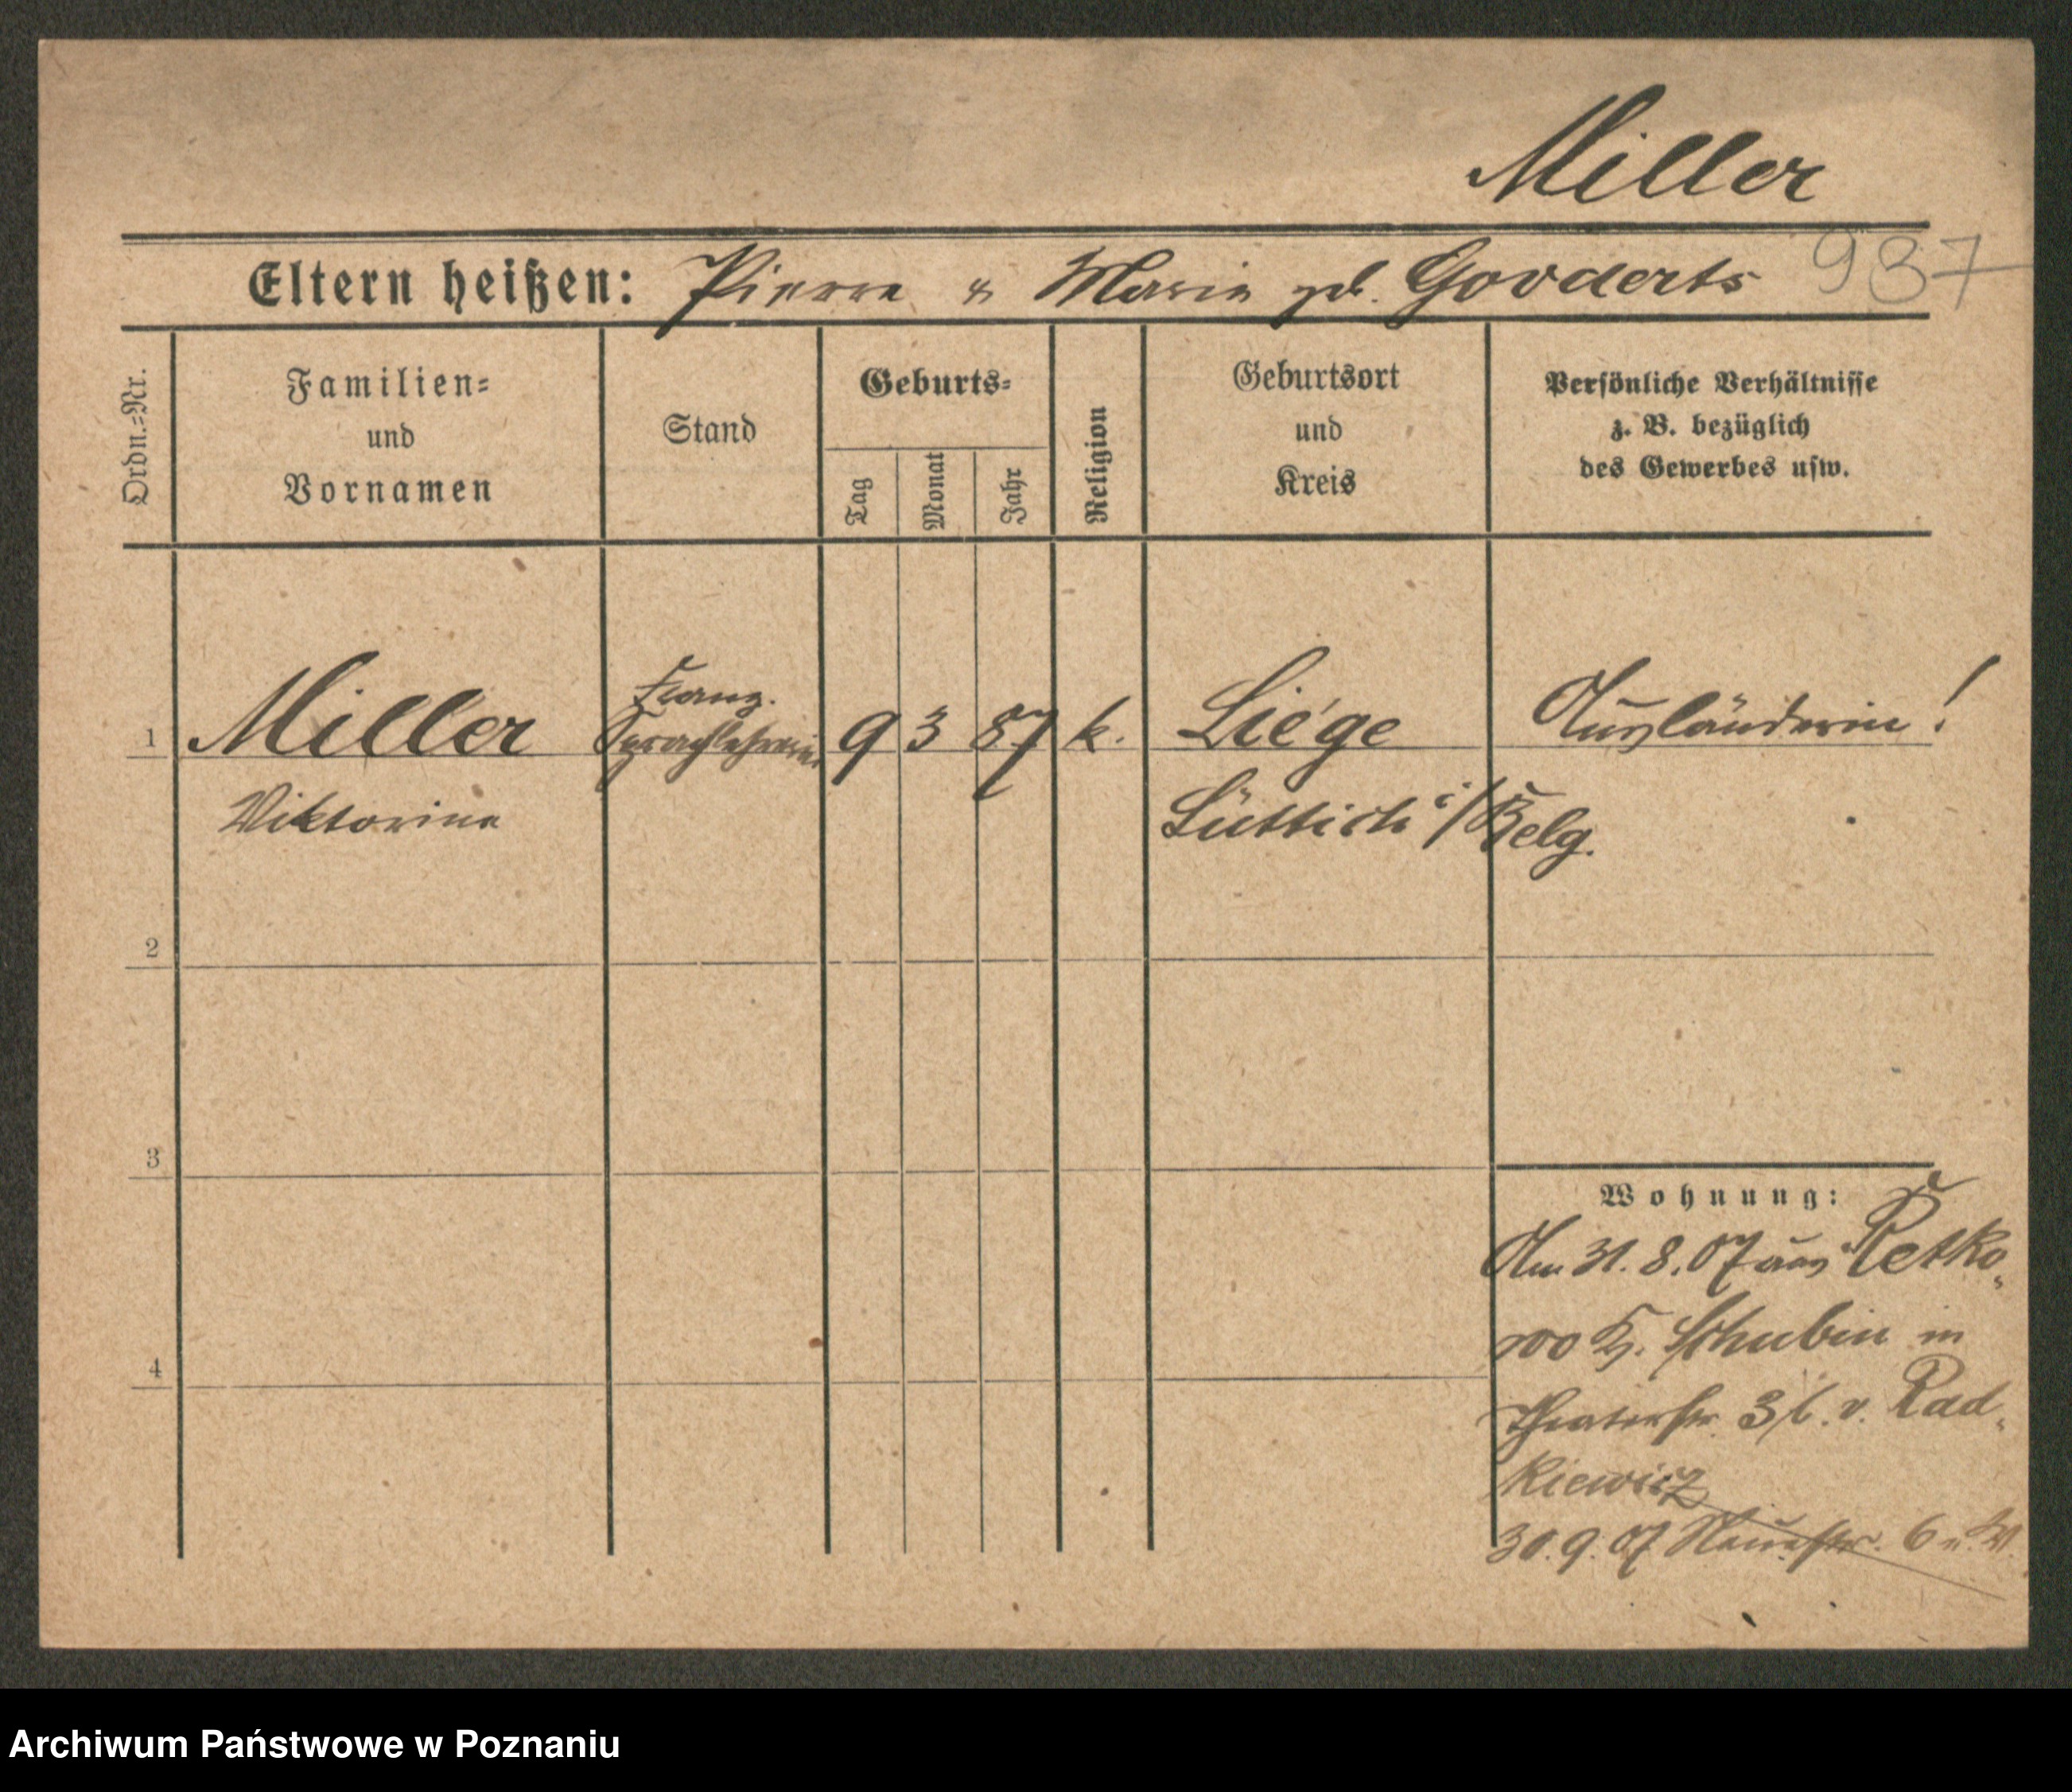 Miller
Eltern heißen: Pierre & Marie geb. Govderts 937
Ordn.=Nr.
Familien=
und
Vornamen
Stand
Geburts=
Tag
Monat
Jahr
Religion
Geburtsort
und
Kreis
Persönliche Verhältnisse
z. B. bezüglich
des Gewerbes usw.
Franz.
1 Miller Sprachlehrerin 9 3 87 k. Liége Ausländerin!
Viktorine Lüttich i/Belg.
2
3
4
Wohnung:
Am 31. 8. 07 aus Retko
wo Kr. Schubin in
Theaterstr. 3 b. v. Rad
kiewicz
30. 9. 07 Neuestr. 6
Archiwum Państwowe w Poznaniu